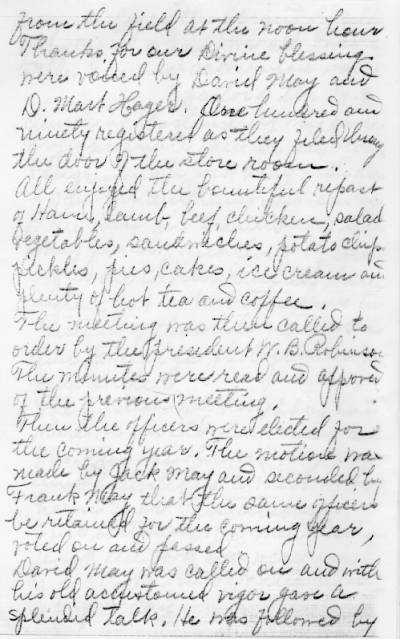 from the field at the noon hour
Thanks for our Divine blessing
were voiced by David May and
D. Mart Hager. One hundred and
ninety registered as they filed through
the door of the store room.
All enjoyed the bountiful repast
of Ham, Lamb, beef, chicken, salad
vegetables, sandwiches, potato chips
pickles, pies, cakes, ice cream and
plenty of hot tea and coffee.
The meeting was then called to
order by the president W. B. Robinson
The minutes were read and approved
of the previous meeting.
Then the officers were elected for
the coming year. The motion was
made by Jack May and seconded by
Frank May that the same officers
be retained for the coming year,
voted on and passed
David May was called on and with
his old accustomed vigor gave a
splendid talk. He was followed by